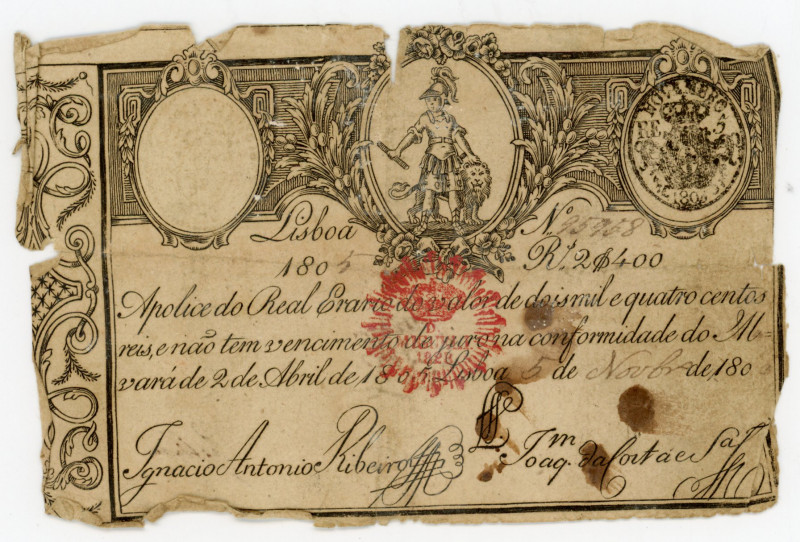 Lisboa N.
1805 R.s 2$400
Apolice do Real Erario de valor de dois mil e quatro centos
reis, e não tem vencimento de juro na conformidade do Al=
vará de 2 de Abril de 1805 Lisboa 5 de Novbr de 180
1826
Ignacio Antonio Ribeiro
L. Joaq.m da Costa e Sá